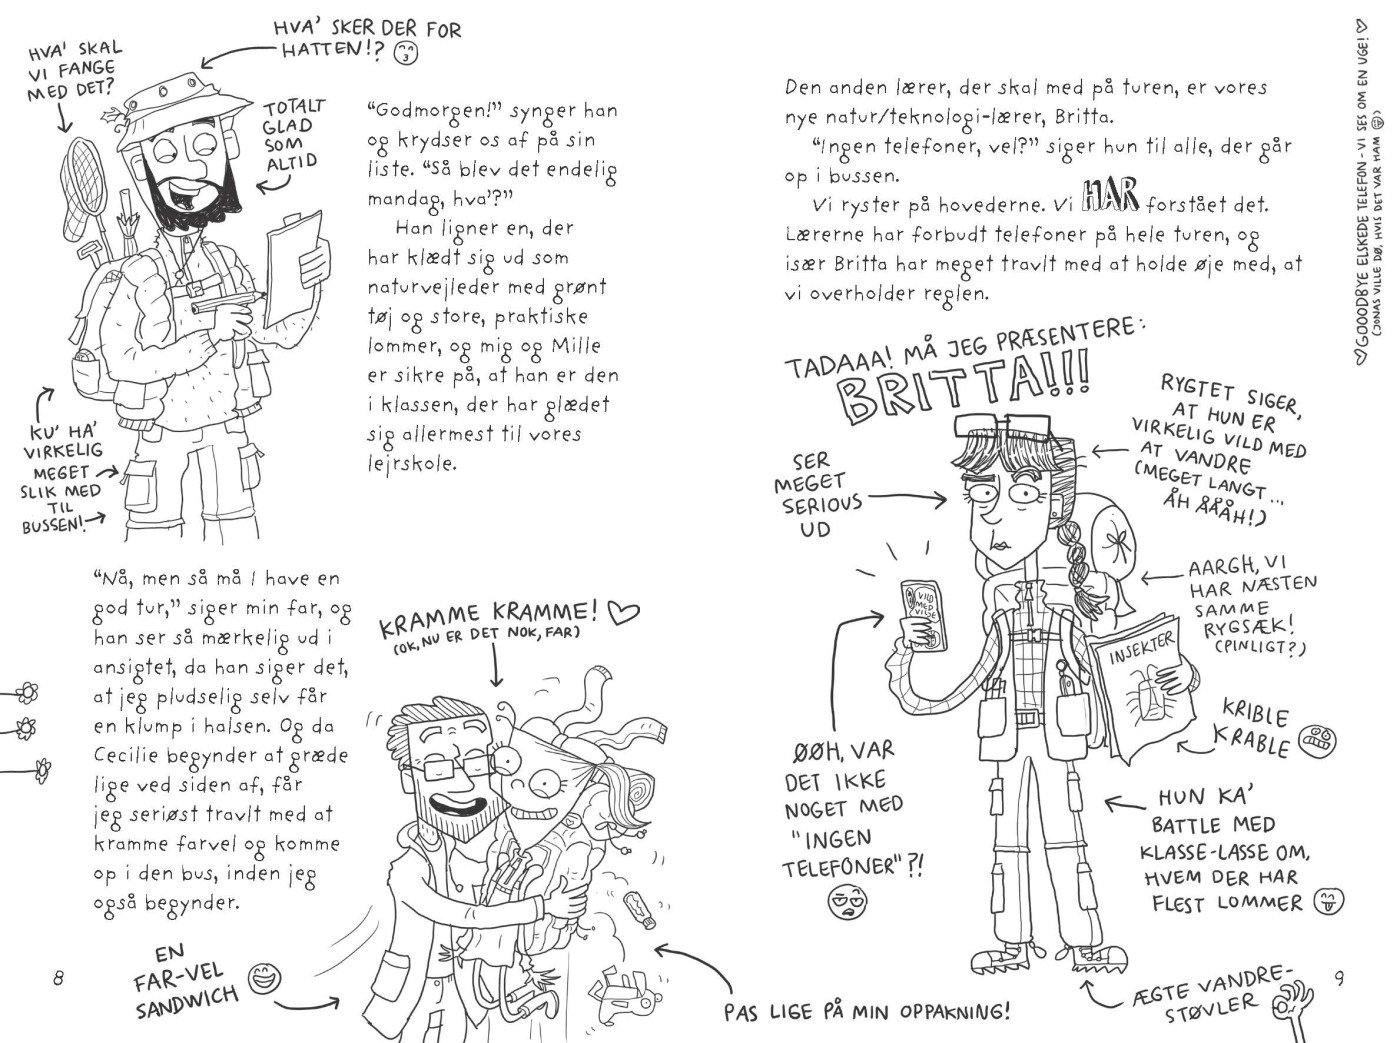 HVA' SKER DER FOR
HATTEN!?
HVA' SKAL
VI FANGE
MED DET?
TOTALT
GLAD
SOM
ALTID
KU' HA'
VIRKELIG
MEGET
SLIK MED
TIL
BUSSEN!
"Godmorgen!" synger han
og krydser os af på sin
liste. "Så blev det endelig
mandag, hva'?"
Han ligner en, der
har klædt sig ud som
naturvejleder med grønt
tøj og store, praktiske
lommer, og mig og Mille
er sikre på, at han er den
i klassen, der har glædet
sig allermest til vores
lejrskole.
"Nå, men så må I have en
god tur," siger min far, og
han ser så mærkelig ud i
ansigtet, da han siger det,
at jeg pludselig selv får
en klump i halsen. Og da
Cecilie begynder at græde
lige ved siden af, får
jeg seriøst travlt med at
kramme farvel og komme
op i den bus, inden jeg
også begynder.
KRAMME KRAMME!
(OK, NU ER DET NOK, FAR)
EN
FAR-VEL
SANDWICH
PAS LIGE PÅ MIN OPPAKNING!
8
Den anden lærer, der skal med på turen, er vores
nye natur/teknologi-lærer, Britta.
"Ingen telefoner, vel?" siger hun til alle, der går
op i bussen.
Vi ryster på hovederne. Vi HAR forstået det.
Lærerne har forbudt telefoner på hele turen, og
især Britta har meget travlt med at holde øje med, at
vi overholder reglen.
GOOODBYE ELSKEDE TELEFON - VI SES OM EN UGE!
(JONAS VILLE DØ, HVIS DET VAR HAM)
TADAAA! MÅ JEG PRÆSENTERE:
BRITTA!!!
SER
MEGET
SERIOUS
UD
RYGTET SIGER,
AT HUN ER
VIRKELIG VILD MED
AT VANDRE
(MEGET LANGT...
ÅH ÅÅÅH!)
AARGH, VI
HAR NÆSTEN
SAMME
RYGSÆK!
(PINLIGT?)
VILD
MED
VILSE
INSEKTER
KRIBLE
KRABLE
ØØH, VAR
DET IKKE
NOGET MED
"INGEN
TELEFONER"?!
HUN KA'
BATTLE MED
KLASSE-LASSE OM,
HVEM DER HAR
FLEST LOMMER
ÆGTE VANDRE-
STØVLER
9